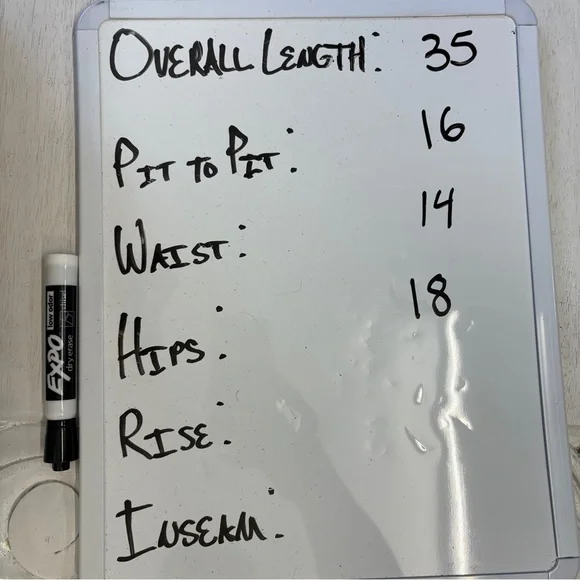 OVERALL LENGTH: 35
PIT TO PIT: 16
WAIST: 14
HIPS: 18
RISE:
INSEAM:
EXPO
low odor
dry erase